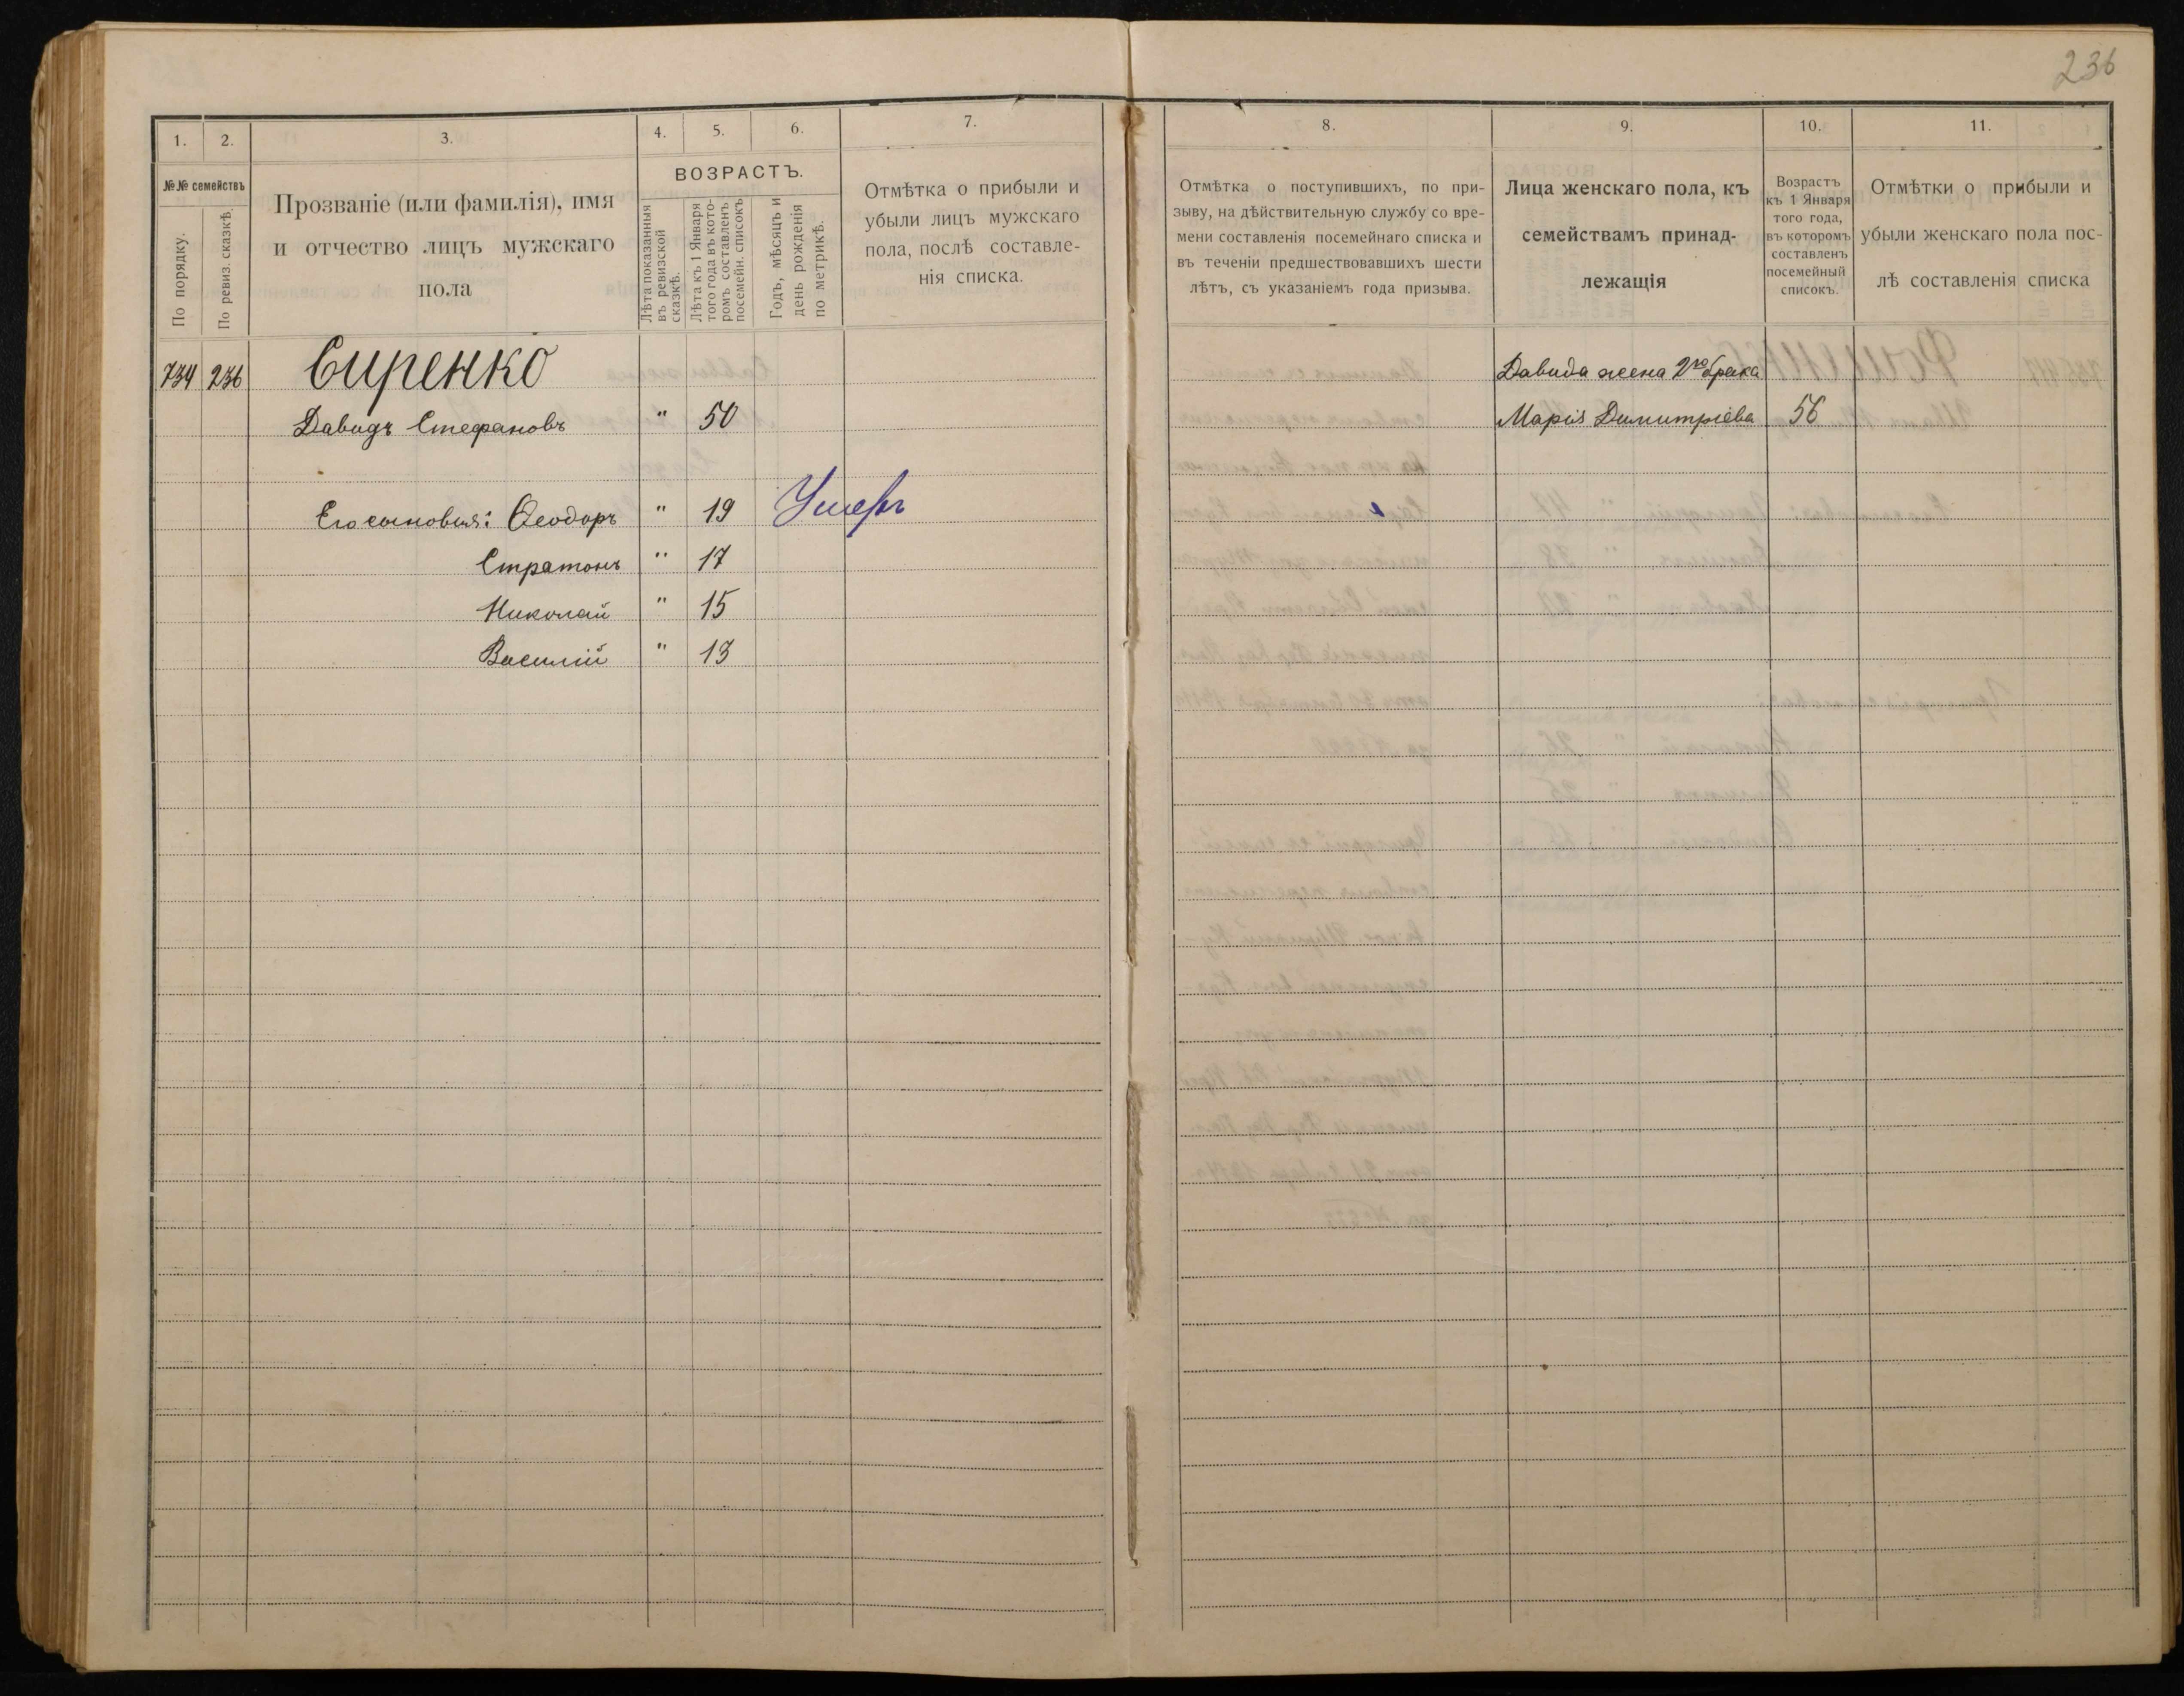 236
1. 2. 3. 4. 5. 6. 7.
№№ семействъ
По порядку.
По ревиз. сказкѣ.
Прозваніе (или фамилія), имя
и отчество лицъ мужскаго
пола
ВОЗРАСТЪ.
Лѣта показанныя
въ ревизской
сказкѣ.
Лѣта къ 1 Января
того года въ кото-
ромъ составленъ
посемейн. списокъ
Годъ, мѣсяцъ и
день рожденія
по метрикѣ.
Отмѣтка о прибыли и
убыли лицъ мужскаго
пола, послѣ составле-
нія списка.
8. 9. 10. 11.
Отмѣтка о поступившихъ, по при-
зыву, на дѣйствительную службу со вре-
мени составленія посемейнаго списка и
въ теченіи предшествовавшихъ шести
лѣтъ, съ указаніемъ года призыва.
Лица женскаго пола, къ
семействамъ принад-
лежащія
Возрастъ
къ 1 Января
того года,
въ которомъ
составленъ
посемейный
списокъ.
Отмѣтки о прибыли и
убыли женскаго пола пос-
лѣ составленія списка
734 236 Сиренко
Давидъ Стефановъ " 50
Его сыновья: Ѳеодоръ " 19 Умеръ
Стратонъ " 17
Николай " 15
Василій " 13
Давида жена 2го брака
Марія Димитріева 56